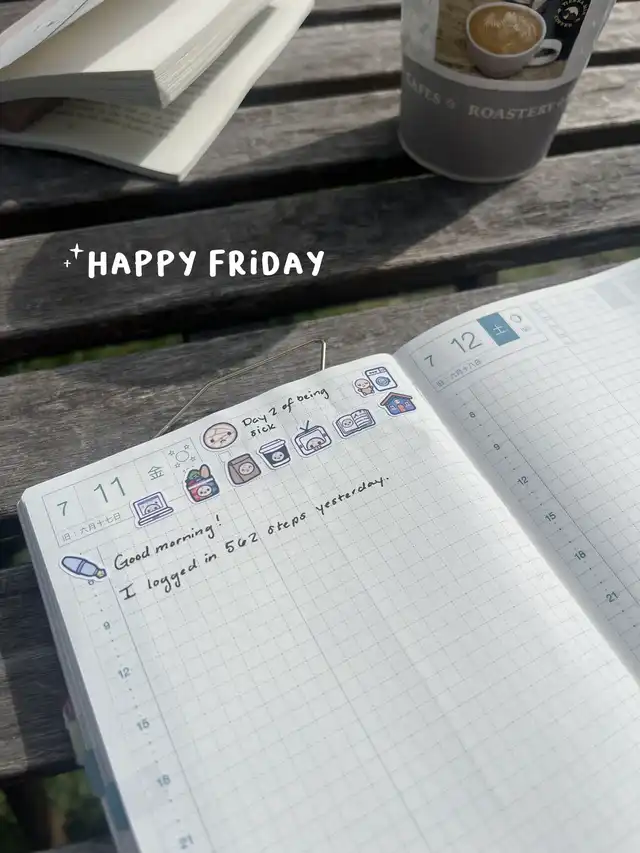 HAPPY FRIDAY
CAFES ROASTERY
7 12 土
旧 六月十八日
7 11 金
旧 六月十七日
Day 2 of being
sick
Good morning!
I logged in 562 steps yesterday.
9
12
15
18
21
6
9
12
15
18
21